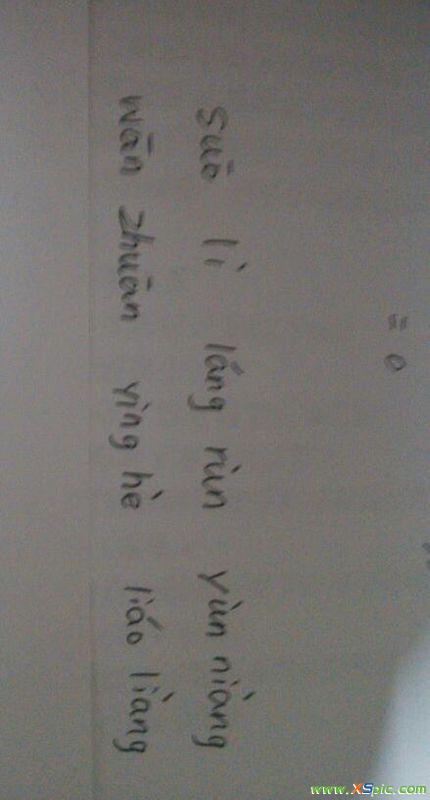 = 0
suō lì láng rùn yùn niàng
wān zhuān yìng hè liáo liàng
www.XSpic.com